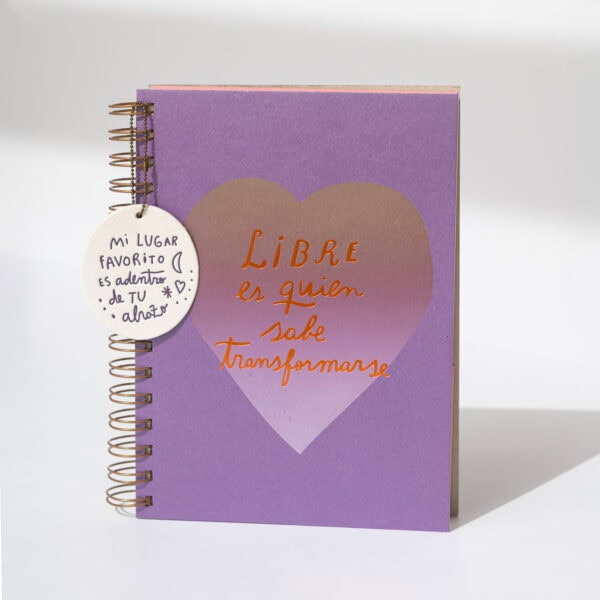 LiBRE
es quien
sabe
transformarse
Mi LUGAR
FAVORiTO
ES adentro
de TU
abrazo